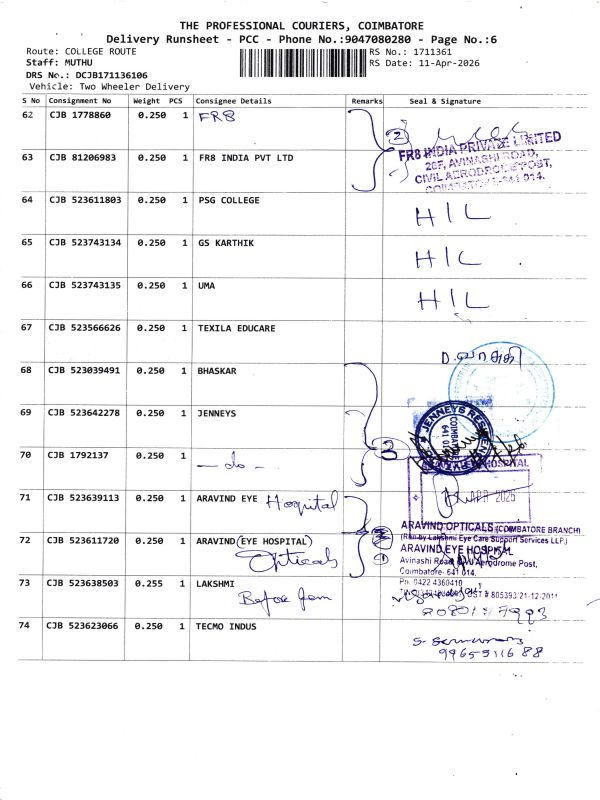 THE PROFESSIONAL COURIERS, COIMBATORE
Delivery Runsheet - PCC - Phone No.:9047080280 - Page No.:6
Route: COLLEGE ROUTE
RS No.: 1711361
Staff: MUTHU
RS Date: 11-Apr-2026
DRS No.: DCJB171136106
Vehicle: Two Wheeler Delivery
S No Consignment No Weight PCS Consignee Details Remarks Seal & Signature
62 CJB 1778860 0.250 1 FR8
2
63 CJB 81206983 0.250 1 FR8 INDIA PVT LTD
FR8 INDIA PRIVATE LIMITED
AVINASHI ROAD,
CIVIL AERODROME POST,
COIMBATORE-641 014.
64 CJB 523611803 0.250 1 PSG COLLEGE H I L
65 CJB 523743134 0.250 1 GS KARTHIK H I L
66 CJB 523743135 0.250 1 UMA H I L
67 CJB 523566626 0.250 1 TEXILA EDUCARE
68 CJB 523039491 0.250 1 BHASKAR
69 CJB 523642278 0.250 1 JENNEYS
JENNEYS
COIMBATORE
3
70 CJB 1792137 0.250 1 - do -
HOSPITAL
APR 2026
71 CJB 523639113 0.250 1 ARAVIND EYE Hospital
72 CJB 523611720 0.250 1 ARAVIND (EYE HOSPITAL)
Opticals
ARAVIND OPTICALS (COIMBATORE BRANCH)
(Run by Lakshmi Eye Care Support Services LLP.)
ARAVIND EYE HOSPITAL
Avinashi Road, Aerodrome Post,
Coimbatore- 641 014.
Ph. 0422 4360410
73 CJB 523638503 0.255 1 LAKSHMI
74 CJB 523623066 0.250 1 TECMO INDUS